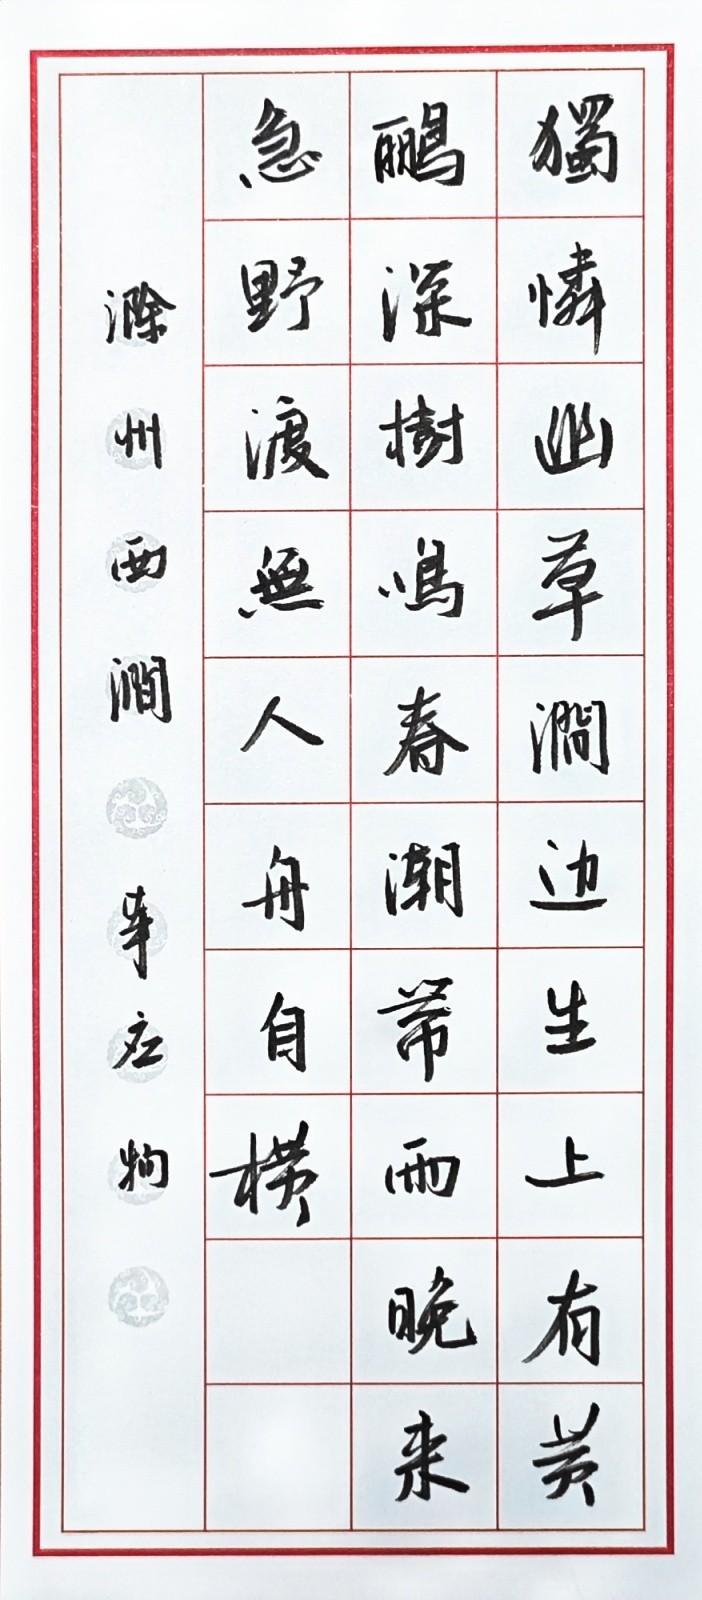 獨憐幽草澗边生上有黄
鹂深樹鳴春潮带雨晚来
急野渡無人舟自横
滁州西澗 韋应物